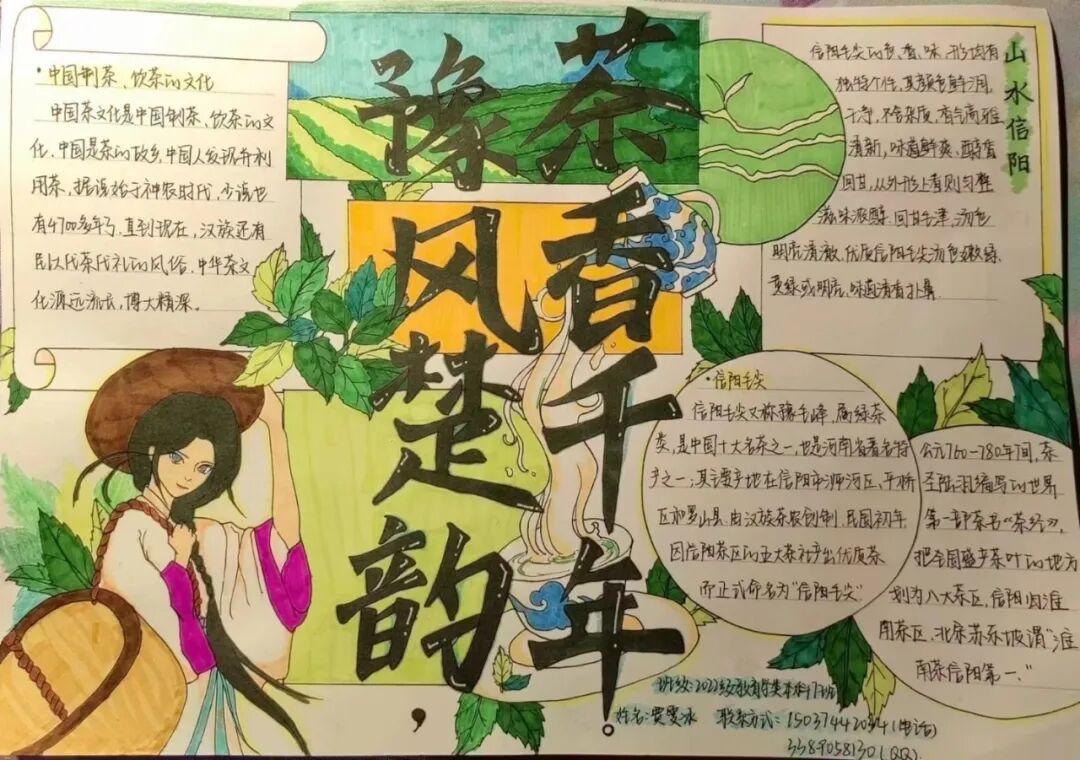 豫风楚韵，
茶香千年。
·中国制茶、饮茶的文化
中国茶文化是中国制茶、饮茶的文
化.中国是茶的故乡,中国人发现并利
用茶,据说始于神农时代,少说也
有4700多年了.直到现在,汉族还有
民以代茶代礼的风俗.中华茶文
化源远流长,博大精深。
山水信阳
信阳毛尖的色、香、味、形均有
独特个性,其颜色鲜润、
干净,不含杂质,香气高雅、
清新,味道鲜爽、醇香、
回甘,从外形上看则匀整
滋味浓醇,回甘生津,汤色
明亮清澈.优质信阳毛尖汤色嫩绿、
黄绿或明亮,味道清香扑鼻.
·信阳毛尖
信阳毛尖又称豫毛峰,属绿茶
类,是中国十大名茶之一,也是河南省著名特
产之一;其主要产地在信阳市浉河区、平桥
区和罗山县.由汉族茶农创制.民国初年,
因信阳茶区的五大茶社产出优质茶
而正式命名为"信阳毛尖"
公元760-780年间,茶
圣陆羽编写的世界
第一部茶书"茶经",
把全国盛产茶叶的地方
划为八大茶区,信阳归淮
南茶区.北宋苏东坡谓"淮
南茶信阳第一."
班级:2022级教育学类本科17班
姓名:贾雯冰 联系方式:15037442034(电话)
3389058130(QQ)